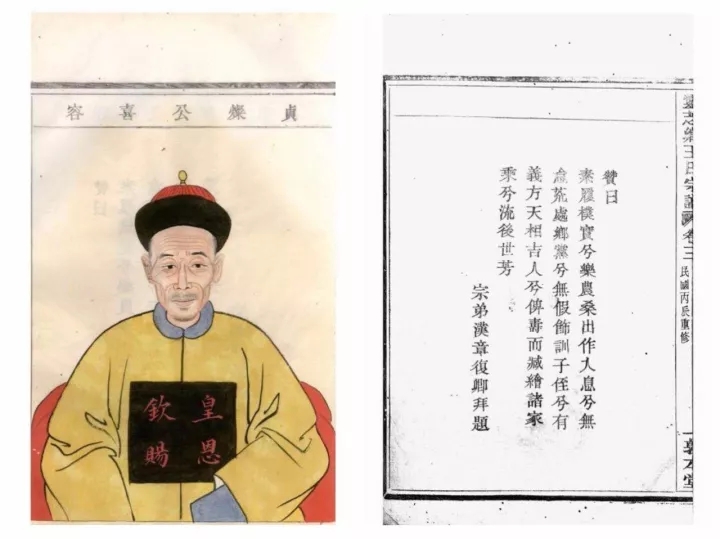 貞爍公喜容
皇恩
欽賜
贊曰
素履樸實兮樂農桑出作入息兮無
怠荒處鄉黨兮無假飾訓子侄兮有
義方天相吉人兮俾壽而臧繪諸家
乘兮流後世芳
宗弟漢章復卿拜題
王氏宗譜
民國丙辰重修
一
敦本堂